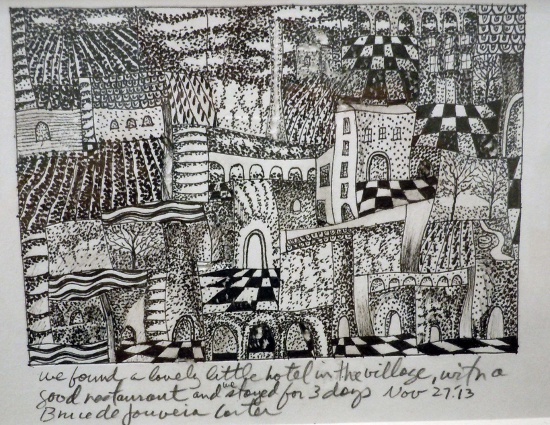 we found a lovely little hotel in the village, with a
good restaurant and we stayed for 3 days Nov 27.'13
Bruce de Gouveia Carter